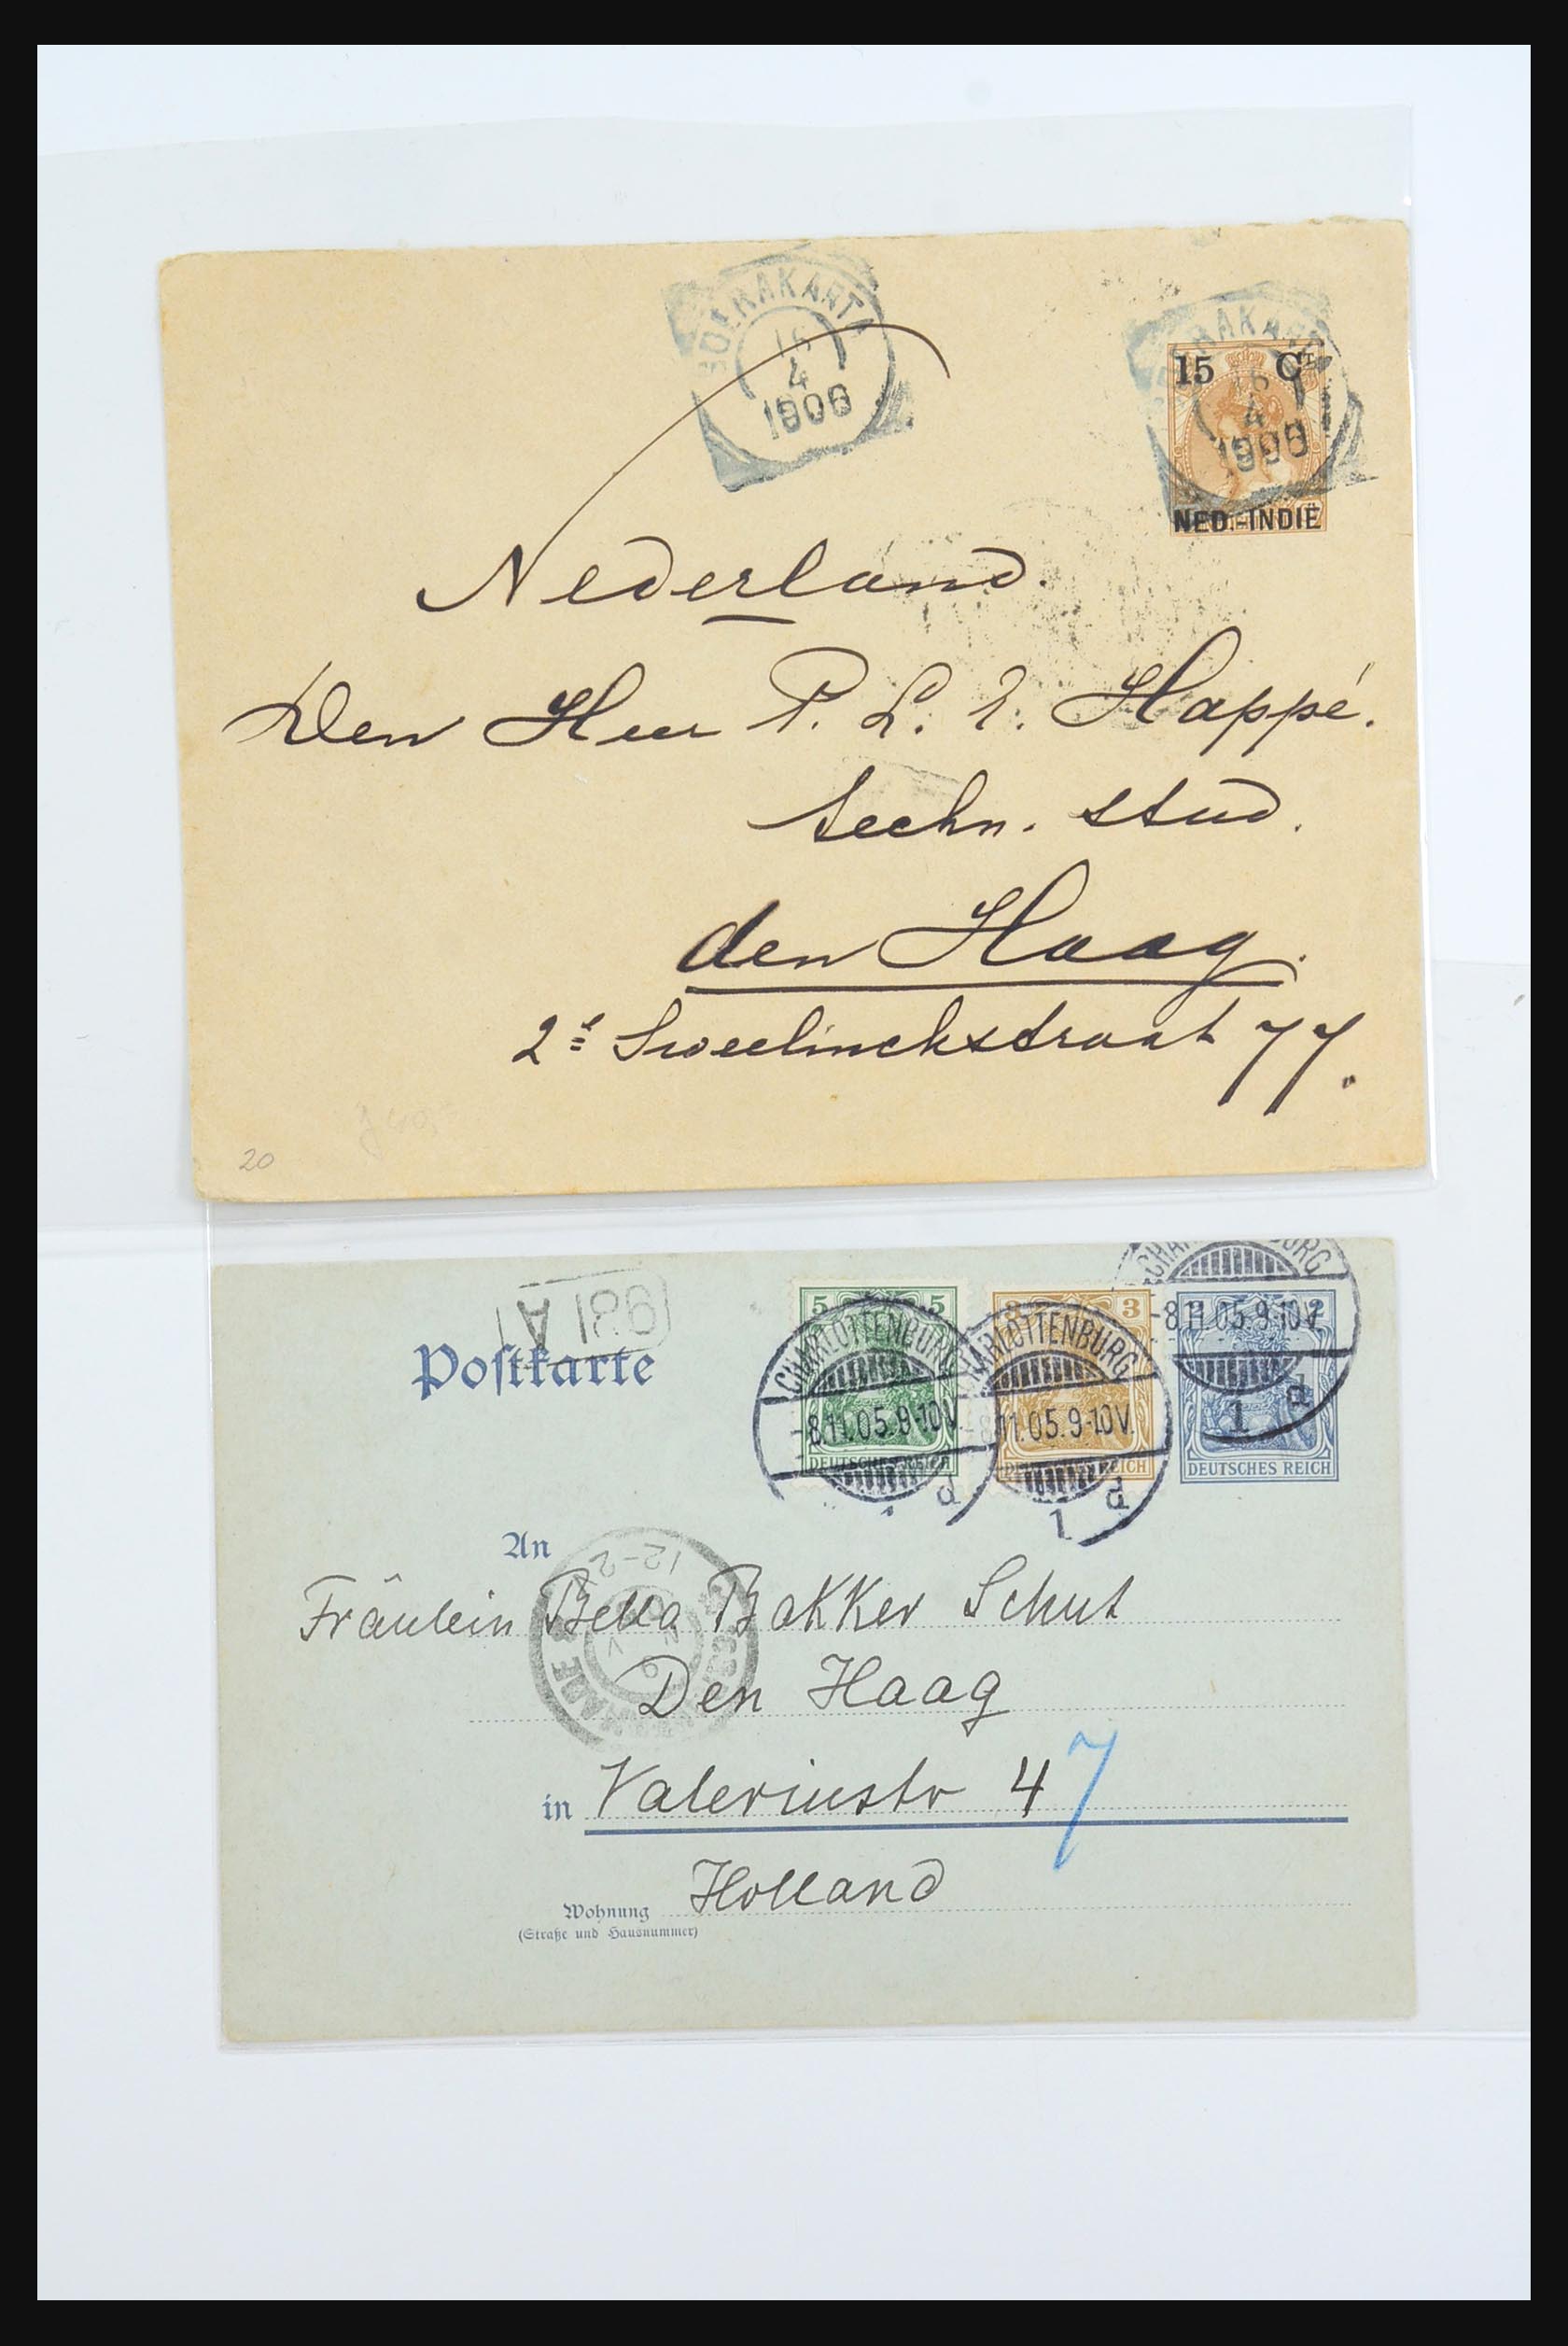 SOERAKARTA
16
4
1906
15 CT
NED.-INDIË
Nederland.
Den Heer P. L. E. Happé.
techn. stud.
den Haag.
2e Sweelinckstraat 77.
20
A 186
Postkarte
5 5
3
2
CHARLOTTENBURG
-8.11.05.9-10V.
1 d
CHARLOTTENBURG
-8.11.05.9-10V.
1 d
CHARLOTTENBURG
-8.11.05.9-10V.
1 d
DEUTSCHES REICH
DEUTSCHES REICH
DEUTSCHES REICH
An
12-2
Fräulein Bella Bakker Schut
Den Haag
in Valeriusstr 47
Holland
Wohnung
(Straße und Hausnummer)